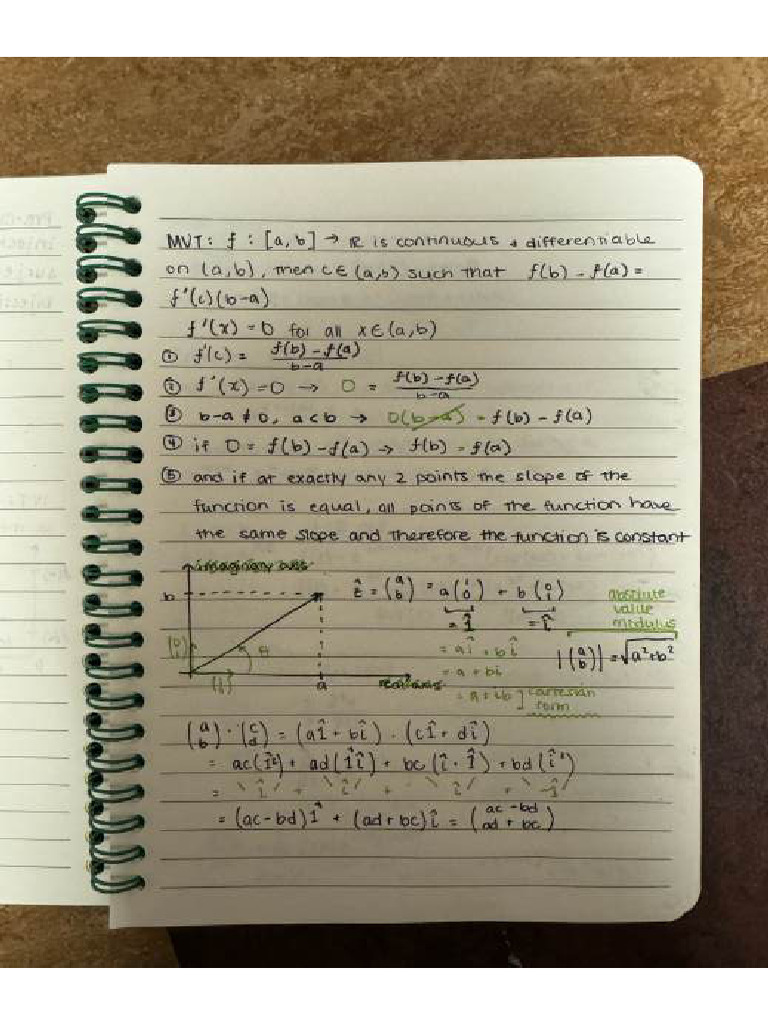 MVT: f : [a, b] → ℝ is continuous & differentiable
on (a,b), then c ∈ (a,b) such that f(b) - f(a) =
f'(c)(b-a)
f'(x) = 0 for all x ∈ (a,b)
① f'(c) = f(b) - f(a) / b-a
② f'(x) = 0 → 0 = f(b) - f(a) / b-a
③ b-a ≠ 0, a < b → 0(b-a) = f(b) - f(a)
④ if 0 = f(b) - f(a) → f(b) = f(a)
⑤ and if at exactly any 2 points the slope of the
function is equal, all points of the function have
the same slope and therefore the function is constant
imaginary axis
b
ẑ = (a b) = a(1 0) + b(0 1)
= 1̂ = î
absolute
value
modulus
= a1̂ + bî
|(a b)| = √a²+b²
= a + bi
a
real axis
= a + ib ] cartesian
form
(a b) · (c d) = (a1̂ + bî) · (c1̂ + dî)
= ac(1̂²) + ad(1̂î) + bc(î · 1̂) + bd(î²)
= 1̂ + î + î + -1̂
= (ac-bd)1̂ + (ad+bc)î = (ac-bd ad+bc)